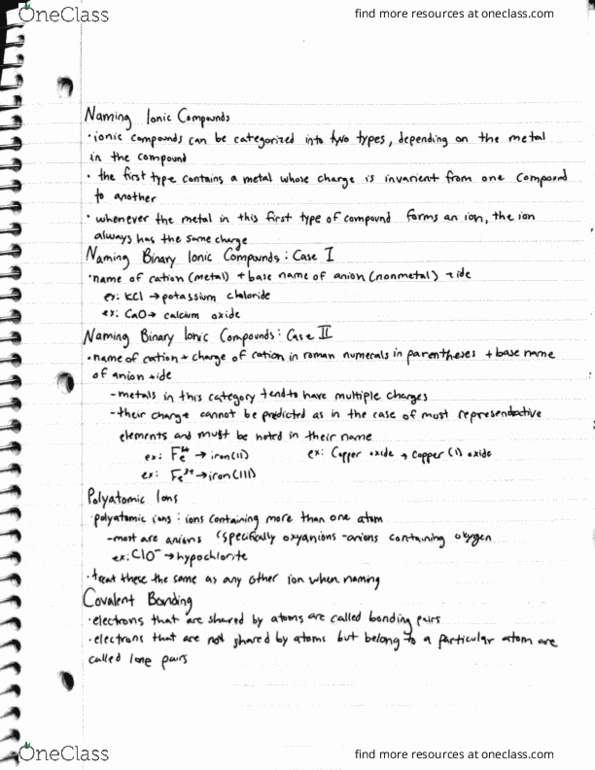 OneClass
find more resources at oneclass.com
Naming Ionic Compounds
• ionic compounds can be categorized into two types, depending on the metal
in the compound
• the first type contains a metal whose charge is invarient from one compound
to another
• whenever the metal in this first type of compound forms an ion, the ion
always has the same charge
Naming Binary Ionic Compounds: Case I
• name of cation (metal) + base name of anion (nonmetal) + ide
ex: KCl → potassium chloride
ex: CaO → calcium oxide
Naming Binary Ionic Compounds: Case II
• name of cation + charge of cation in roman numerals in parentheses + base name
of anion + ide
- metals in this category tend to have multiple charges
- their charge cannot be predicted as in the case of most representative
elements and must be noted in their name
ex: Fe → iron(II) ex: Copper oxide → copper (I) oxide
ex: Fe³⁺ → iron(III)
Polyatomic Ions
• polyatomic ions: ions containing more than one atom
- most are anions (specifically oxyanions - anions containing oxygen
ex: ClO⁻ → hypochlorite
• treat these the same as any other ion when naming
Covalent Bonding
• electrons that are shared by atoms are called bonding pairs
• electrons that are not shared by atoms but belong to a particular atom are
called lone pairs
OneClass
find more resources at oneclass.com